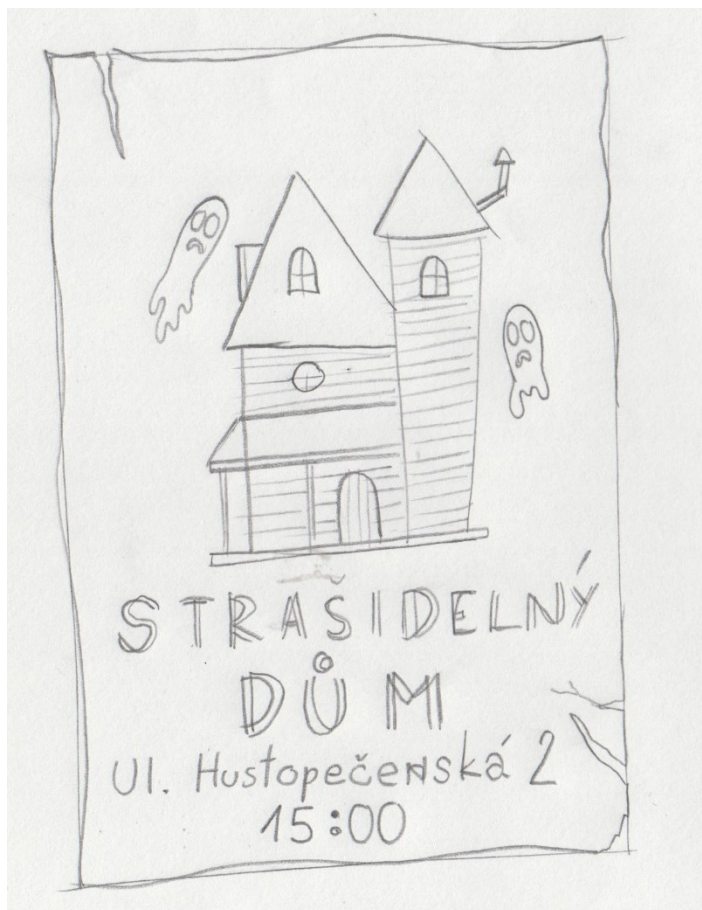 STRAŠIDELNÝ
DŮM
Ul. Hustopečenská 2
15:00